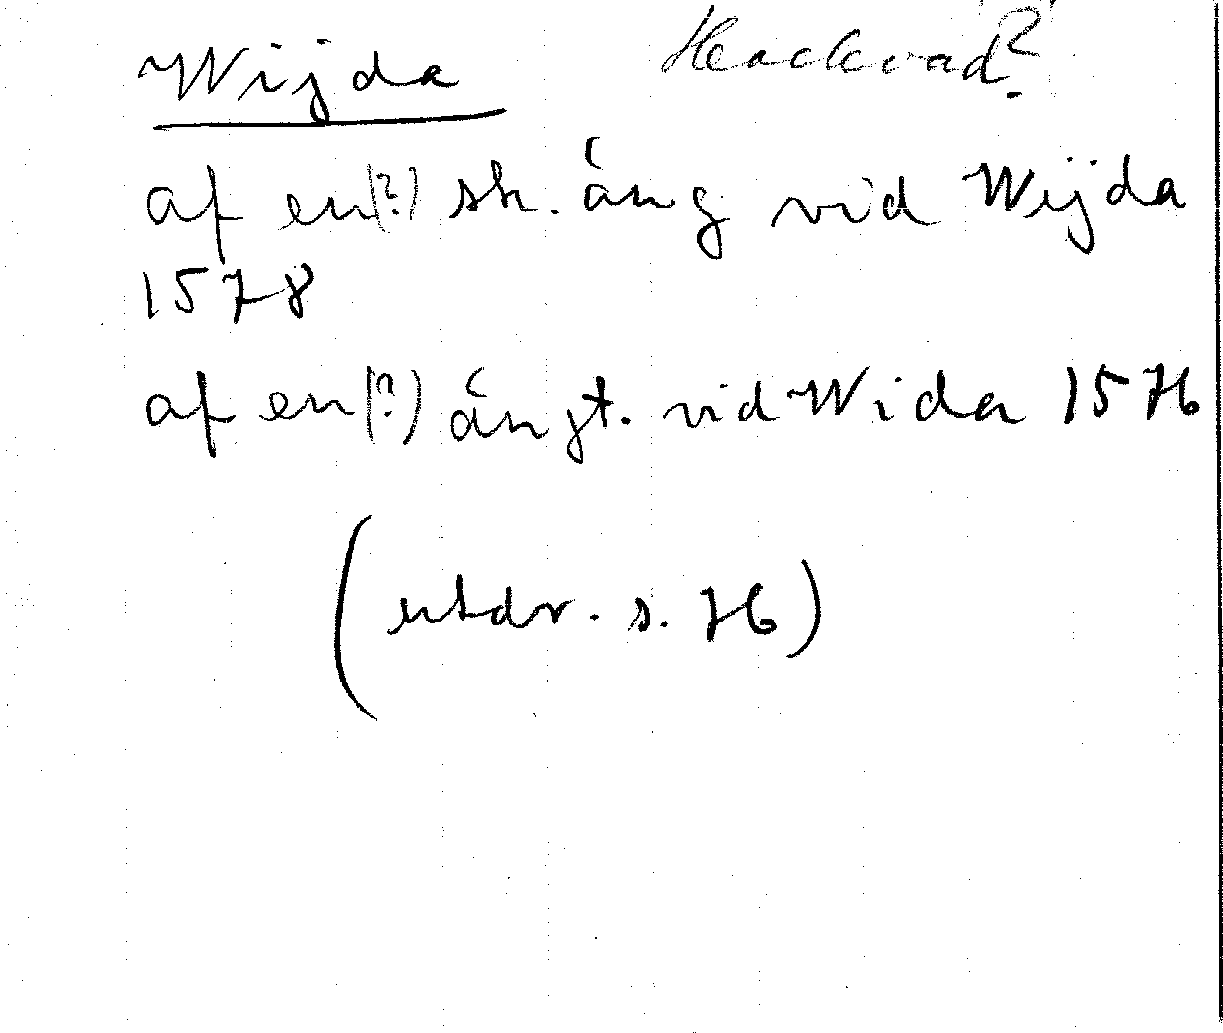 Wijda Hackvad?
af en(?) sk. äng vid Wijda
1578
af en(?) ängt. vid Wida 1576
(utdr. s. 76)